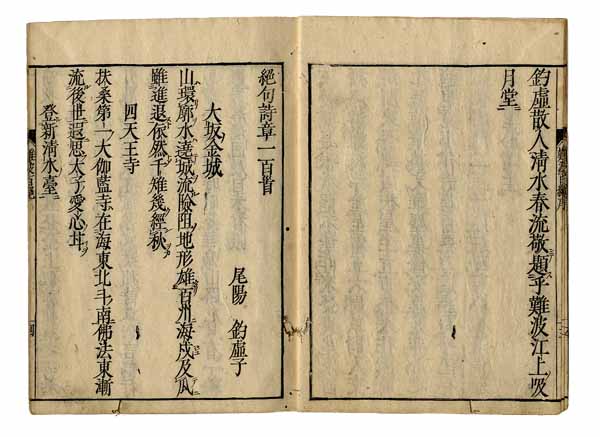 釣虛散人清水春流敬題乎難波江上吸
月堂
絕句詩章一百首
尾陽 釣虛子
大坂金城
山環廓水遶城流險阻地形雄百州海戍及瓜
雖進退依然千雉幾經秋
四天王寺
扶桑第一大伽藍寺在海東北斗南佛法東漸
流後世遐思太子愛心甘
登新清水臺